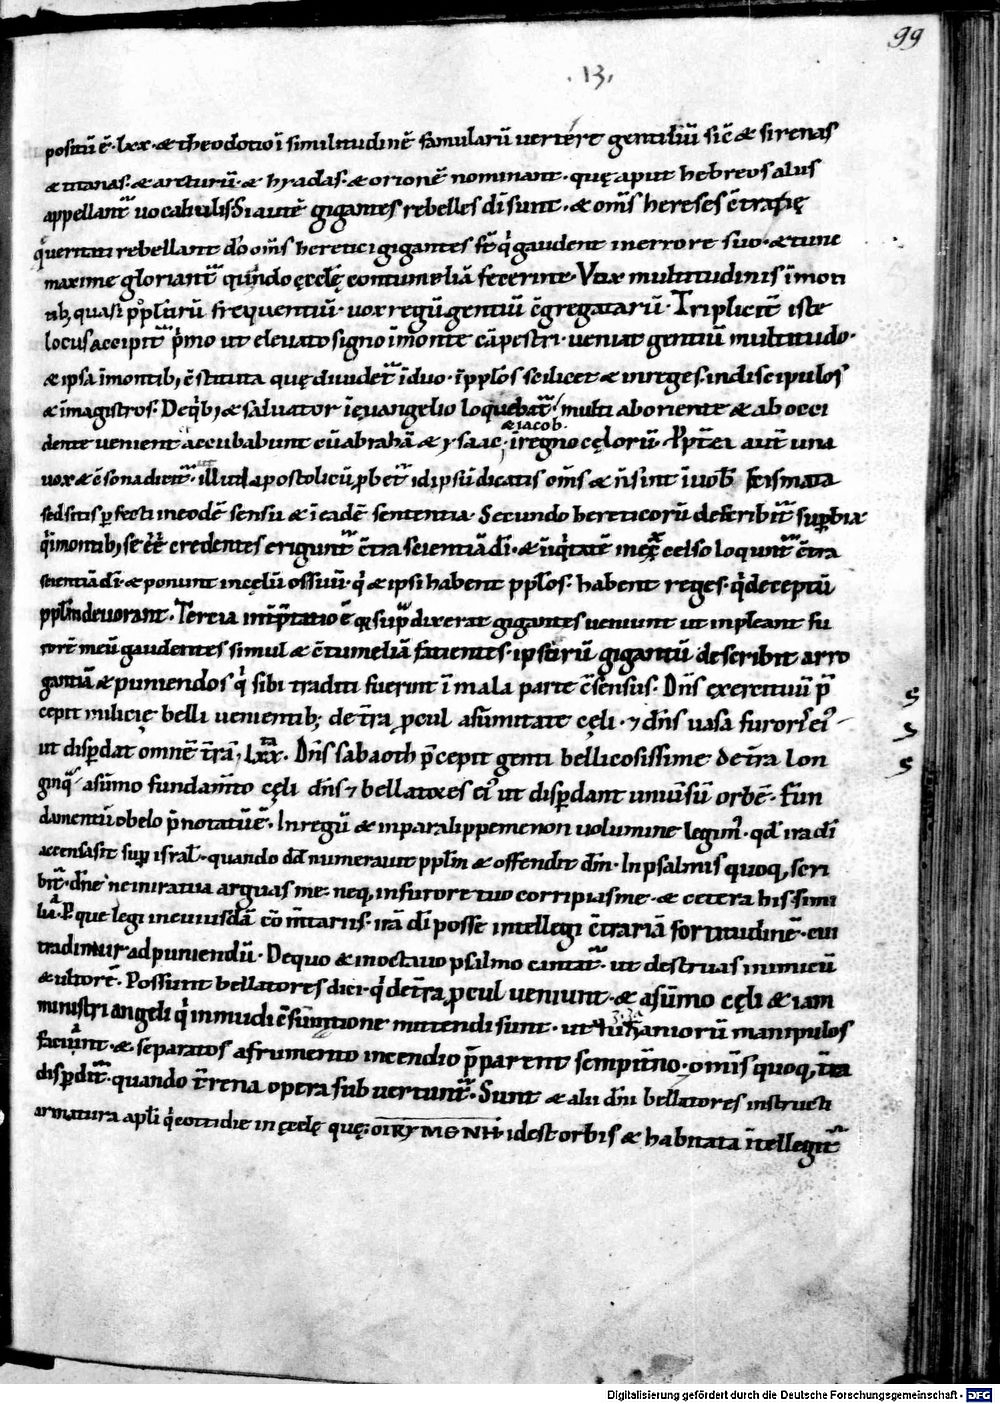 99
.13.
positū ē. lxx. & theodotio ī similitudinē famularū vertere gentiliū sic̄ & sirenas
& titanas. & arcturū. & hyadas. & orionē nominant. quę aput hebreos aliis
appellant̄ vocabulis. Si autē gigantes rebelles dī sunt. & om̄s hereses c̄trarię
veritati rebellant om̄s heretici gigantes qͥ gaudent in errore suo. & tunc
maxime gloriant̄ quando ęcclę contumeliā fecerint. Vox multitudinis ī mon
tib; quasi pplorū frequentiū. vox regū gentiū c̄gregatarū. Triplicit̄ iste
locus accipit̄ pͥmo ut elevato signo ī monte cāpestri. veniat gentiū multitudo.
& ipsa ī montib; c̄stituta quę dividet̄ ī duo. ī pplos scilicet & in reges. in discipulos
& ī magistros. De qͥb; & salvator ī evangelio loquebat̄. multi ab oriente & ab occi
& iacob.
dente venient & accubabunt cū abrahā & ysaac. ī regno cęlorū. Pp̄terea aut̄ una
vox & c̄sona dicit̄. ut illud apostolicū p̄bet̄. id ipsū dicatis om̄s & n̄ sint ī vob̄ scismata
sed sitis perfecti in eodē sensu & ī eadē sententia. Secundo hereticorū describit̄ superbia
qͥ ī montib; se ēē credentes erigunt̄ c̄tra scientiā dī. & īiqͥtatē in excelso loqunt̄ c̄tra
scientiā dī. & ponunt in cęlū os suū. qͥ & ipsi habent pplos. habent reges. qͥ deceptū
pplm devorant. Tercia int̄ptatio ē qa sup̄ dixerat gigantes veniunt ut inpleant fu
rorē meū gaudentes simul & c̄tumeliā facientes. ipsorū gigantū describit arro
gantiā & puniendos qͥ sibi traditi fuerint ī mala parte c̄sensus. Dn̄s exercituū p̄
cepit milicię belli venientib; de t̄ra p̄cul a sūmitate cęli. 7 dn̄s vasa furoris eiꝰ
ut disperdat omnē t̄rā, Lxx. Dn̄s sabaoth p̄cepit genti bellicosissime de t̄ra lon
ginq̄ a sūmo fundam̄to cęli dn̄s 7 bellatores eiꝰ ut disperdant univ̄sū orbē. Fun
damentū obelo p̄notatū ē. In regū & in paralippemenon volumine legimꝰ. qd̄ ira dī
accensa sit sup̄ isral. quando dd̄ numeravit pplm & offendit dm̄. In psalmis quoq, scri
bit̄. dn̄e ne in ira tua arguas me: neq, in furore tuo corripias me. & cetera his simi
lia. que legi in cuiusdā cōm̄tariis. irā dī posse intellegi c̄trariā fortitudinē. cui
tradimur ad puniendū. De quo & in octavo psalmo cantat̄. ut destruas inimicū
& ultorē. Possunt bellatores dici qͥ de t̄ra p̄cul veniunt. & a sūmo cęli & iam
ministri angeli qͥ in mūdi c̄sūmatione mittendi sunt. ut zizaniorū manipulos
faciant. & separatos a frumento incendio p̄parent sempit̄no. omīs quoq, t̄ra
disperdit̄. quando t̄rrena opera subvertunt̄. Sunt & alii dn̄i bellatores instructi
armatura apl̄i qͥ cottidie in ęcclę quę: ΟΙΚΥΜΕΝΗ. idest orbis & habitata intellegit̄
s
s
s
Digitalisierung gefördert durch die Deutsche Forschungsgemeinschaft - DFG